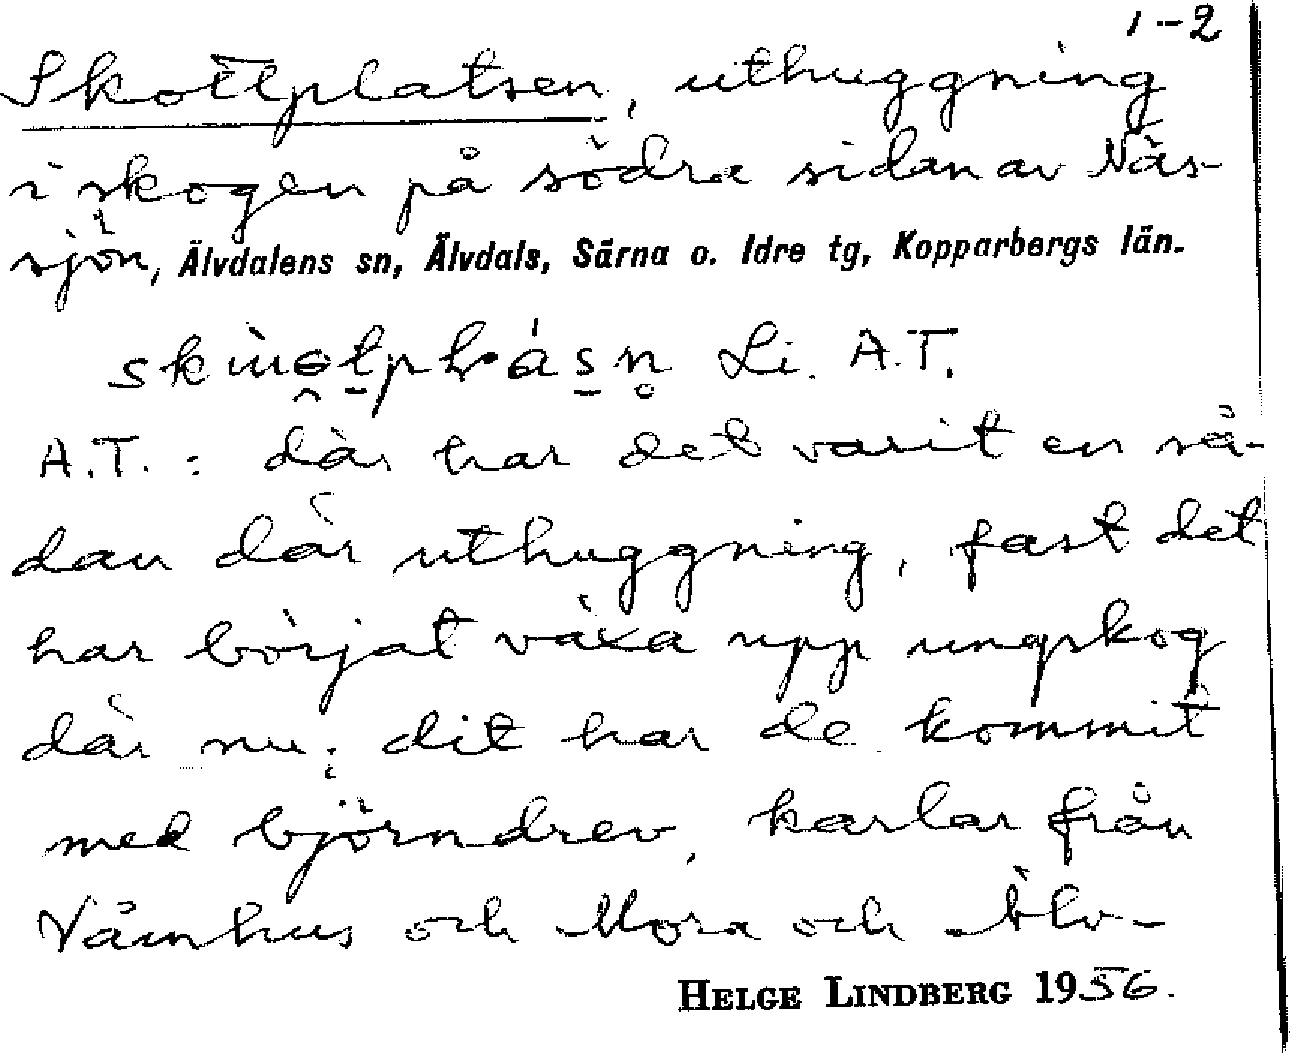 1-2
Skottplatsen, uthuggning
i skogen på södra sidan av Näs-
sjön, Älvdalens sn, Älvdals, Särna o. Idre tg, Kopparbergs län.
Li. A.T.
A.T. : där har det varit en så-
dan där uthuggning, fast det
har börjat växa upp ungskog
där nu; dit har de kommit
med björndrev, karlar från
Våmhus och Mora och Älv-
HELGE LINDBERG 1956.